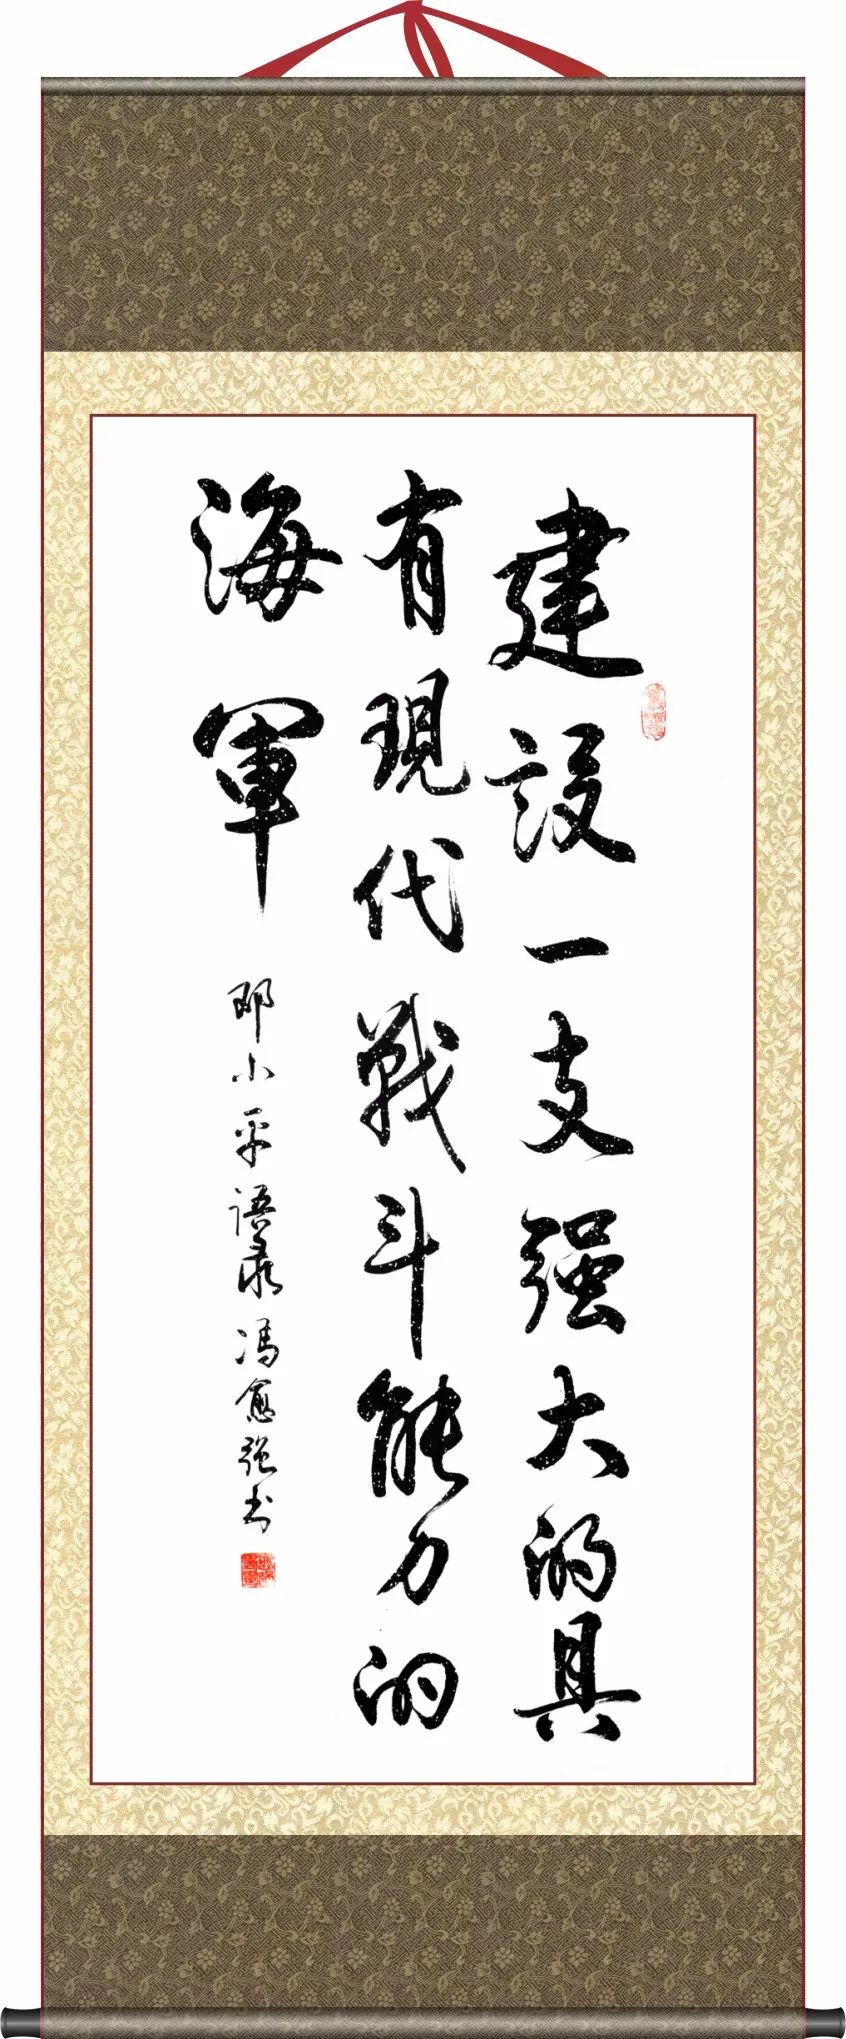 建設一支强大的具
有現代戰斗能力的
海軍
邓小平語录 冯愈强书